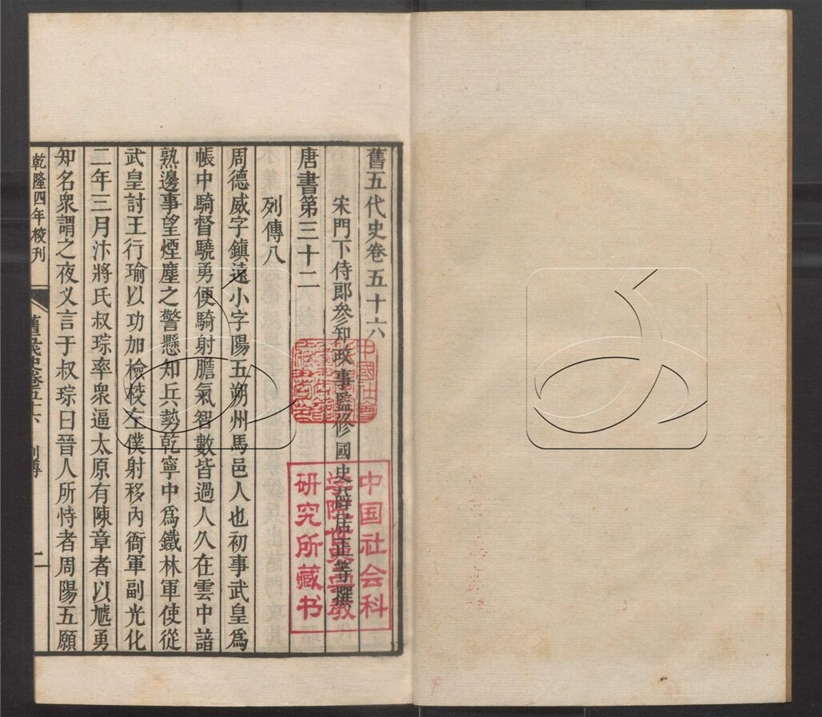 舊五代史卷五十六
宋門下侍郎參知政事監修國史薛居正等撰
唐書第三十二
列傳八
周德威字鎮遠小字陽五朔州馬邑人也初事武皇爲
帳中騎督驍勇便騎射膽氣智數皆過人久在雲中諳
熟邊事望煙塵之警懸知兵勢乾寧中爲鐵林軍使從
武皇討王行瑜以功加檢校左僕射移內衙軍副光化
二年三月汴將氏叔琮率衆逼太原有陳章者以虓勇
知名衆謂之夜义言于叔琮曰晉人所恃者周陽五願
乾隆四年校刊
舊五代史卷五十六 列傳
二
中国社会科
学院世界宗教
研究所藏书